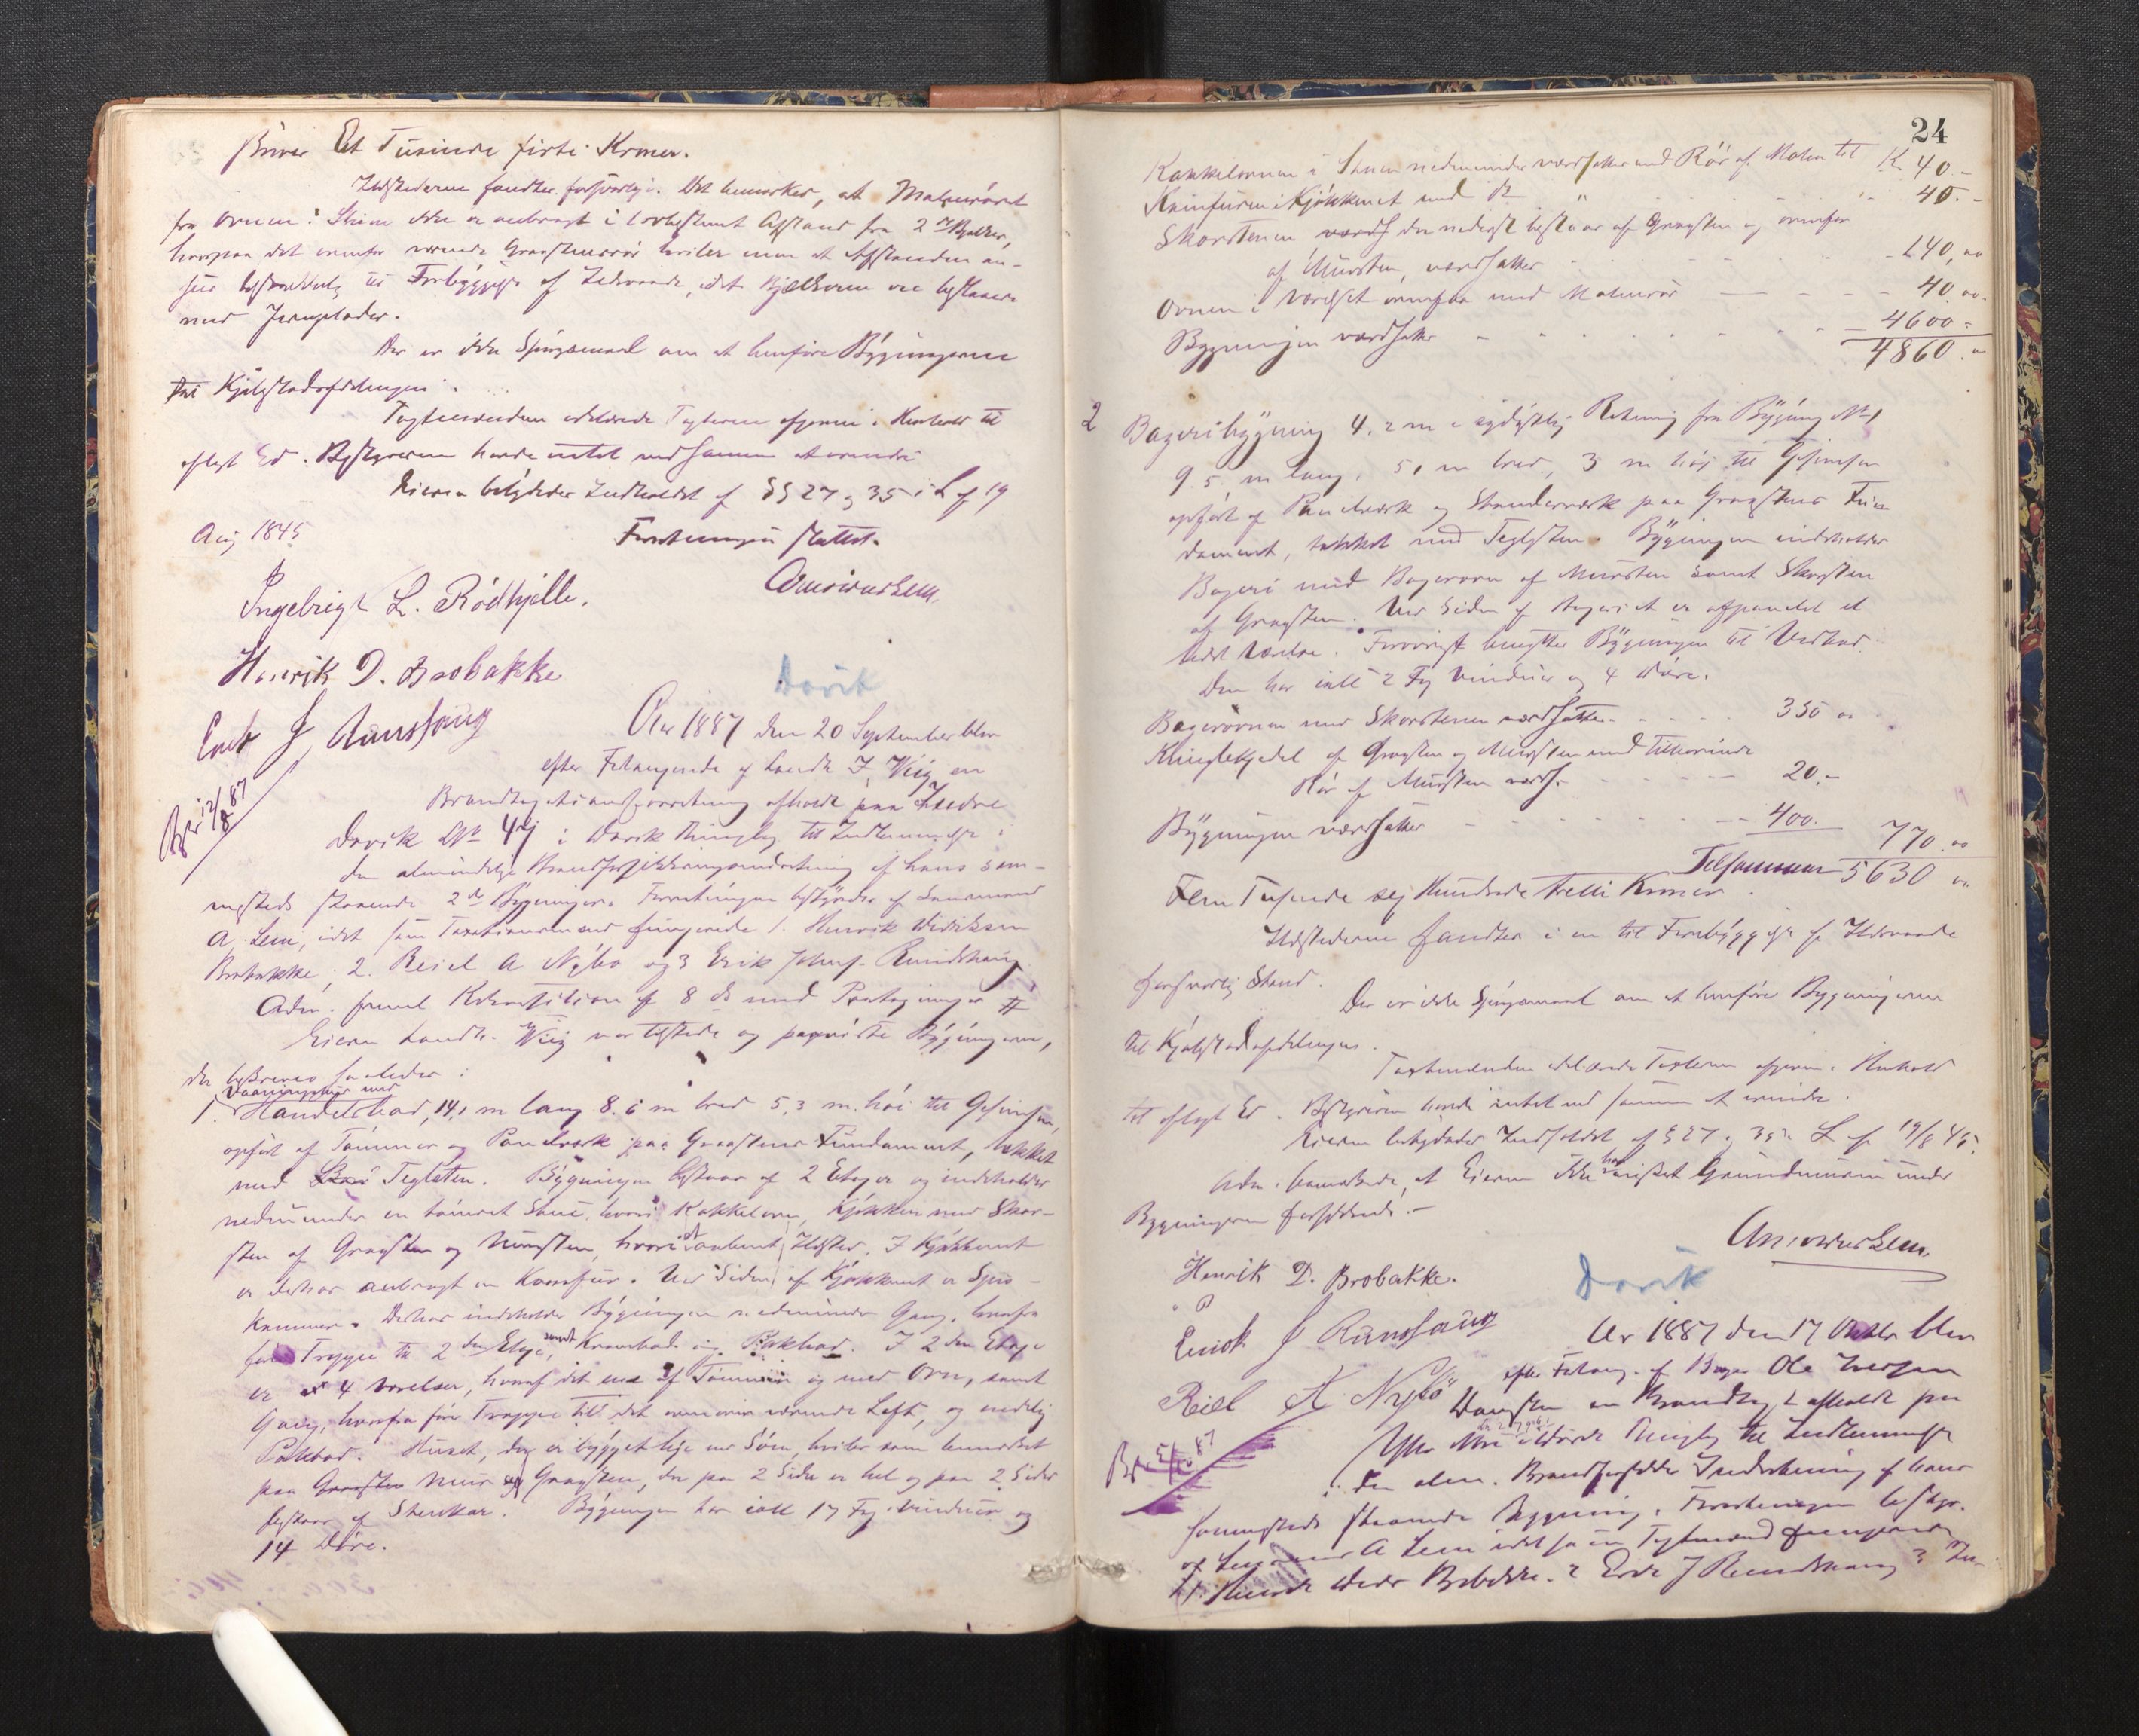 skriver Et Tusinde firti Kroner.
Ildstederne fandtes forsvarlige. Det bemærkes, at Malmrøret
fra Ovnen i Stuen ikke er anbragt i lovbestemt Afstand fra 2 Bjælker,
hvorpaa det ovenfor værende Graastensrør hviler men at Afstanden an-
sees til Forebyggelse af Ildsvaade, idet Bjælkerne ere beslaaede
med Jernplader.
Der er ikke Spørgsmaal om at henføre Bygningerne
til Kjøbstadafdelingen.
Taxtmændene erklærede Taxterne afgivne i Henhold til
aflagt Ed. Bestyreren havde intet ved samme at erindre
Eieren betydedes Indholdet af §§ 27 og 35 i L af 19
Aug 1845
Forretningen sluttet.
Ingebrigt L. Rødhjelle.
Henrik D. Brobakke
Davik
Aar 1887 den 20 September blev
efter Forlangende af Landh. J. Wiig en
Brandtaxationsforretning afholdt paa Indre
Davik i Davik Thinglag til Indlemmelse i
den almindelige Brandforsikringsindretning af hans sam-
mesteds staaende 2de Bygninger. Forretningen bestyredes af Lensmand
A. Lem, idet som Taxationsmænd fungerede 1. Henrik Didriksen
Brobakke, 2. Reiel A Nybø og 3 Enok Johns. Rundshaug
Adm. freml Rekvisition af 8 ds med Paategninger
Eieren Landh. Wiig var tilstede og paaviste Bygningerne,
der beskrives saaledes:
Vaaningshus med
1. Handelsbod, 14,1 m lang 8.6 m bred 5,3 m. høi til Gesimsen,
opført af Tømmer og Panelværk paa Graastens Fundament, tækket
med Teglsten. Bygningen bestaar af 2 Etager og indeholder
nedenunder en tømret Stue, hvori Kakkelovn, Kjøkken med Skor-
sten af Graasten og Mursten, hvori et aabent Ildsted. I Kjøkkenet
er derhos anbragt en Komfur. Ved Siden af Kjøkkenet er Spis-
kammer. Derhos indeholder Bygningen nedenunder Gang, hvorfra
fører Trappe til 2den Etage, samt Krambod og Pakbod. I 2den Etage
er 4 Værelser, hvoraf det ene af Tømmer og med Ovn, samt
Gang, hvorfra fører Trappe til det ovenover værende Loft, og endelig
Pakbod. Huset, der er bygget lige ved Søen, hviler som bemærket
paa Mur af Graasten, der paa 2 Sider er hel og paa 2 Sider
bestaar af Stenkar. Bygningen har ialt 17 Fag Vinduer og
14 Døre.
24
Kakkelovnen i Stuen nedenunder værdsættes med Rør af Malm til K 40.-
Komfuren i Kjøkkenet med do " 40.-
Skorstenen der nederst bestaar af Graasten og ovenfor
af Mursten, værdsættes 140,00
Ovnen i Værelset ovenpaa med Malmrør 40.00.
Bygningen værdsættes 4600 -
4860.00
2 Bageribygning 4.2 m i sydøstlig Retning fra Bygning No 1
9.5 m lang, 5,1 m bred, 3 m høi til Gesimsen
opført af Panelværk og Stenderværk paa Graastens Fun-
dament, tækket med Teglsten. Bygningen indeholder
Bageri med Bagerovn af Mursten samt Skorsten
af Graasten. Ved Siden af Bageriet er afpanelet et
lidet Værelse. Forøvrigt benyttes Bygningen til Vedbod.
Den har ialt 2 Fag Vinduer og 4 Døre.
Bagerovnen med Skorstenen værdsættes 350 00
Kringlekjedel af Graasten og Mursten med tilhørende
Rør af Mursten værds. 20.-
Bygningen værdsættes 400. 770.00
Tilsammen 5630 00
Fem Tusende sex Hundrede tretti Kroner.
Ildstederne fandtes i en til Forebyggelse af Ildsvaade
forsvarlig Stand.
Der er ikke Spørgsmaal om at henføre Bygningerne
til Kjøbstadafdelingen.
Taxtmændene erklærede Taxterne afgivne i Henhold
til aflagt Ed. Bestyreren havde intet ved samme at erindre.
Eieren betydedes Indholdet af § 27 og 35 i L af 19/8 45.
Adm. bemærkede, at Eieren ikke har Grundmuren under
Bygningerne forsikrede.-
Henrik D. Brobakke.
Davik
Enok J Rundshaug
Reiel A Nybø
Aar 1887 den 17 Oktbr blev
efter Forlang. af Bager Ole Iversen
en Brandtaxt afholdt paa
i Davik Thinglag til Indlemmelse
i den alm. Brandforsikr Indretning af hans
sammesteds staaende Bygning. Forretningen bestyr.
af Lensmand A Lem idet som Taxtmænd fungerede
1. Henrik Didr Brobakke. 2 Enok J Rundshaug 3